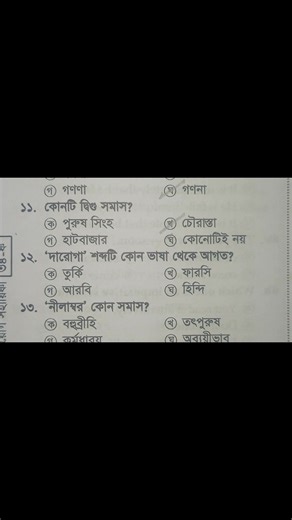 গ গণণা ঘ গণনা
১১. কোনটি দ্বিগু সমাস?
ক পুরুষ সিংহ খ চৌরাস্তা
গ হাটবাজার ঘ কোনোটিই নয়
১২. ‘দারোগা’ শব্দটি কোন ভাষা থেকে আগত?
ক তুর্কি খ ফারসি
গ আরবি ঘ হিন্দি
১৩. ‘নীলাম্বর’ কোন সমাস?
ক বহুব্রীহি খ তৎপুরুষ
গ কর্মধারয় ঘ অব্যয়ীভাব